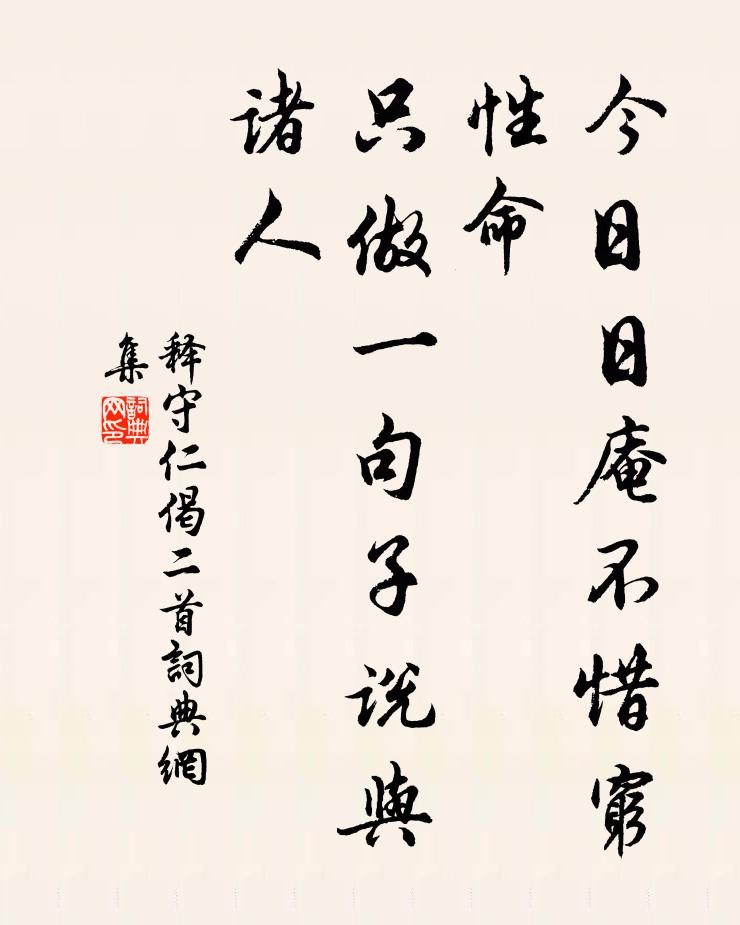 今日日庵不惜窮
性命
只做一句子说與
诸人
释守仁偈二首詞典網
集
詞典
网印